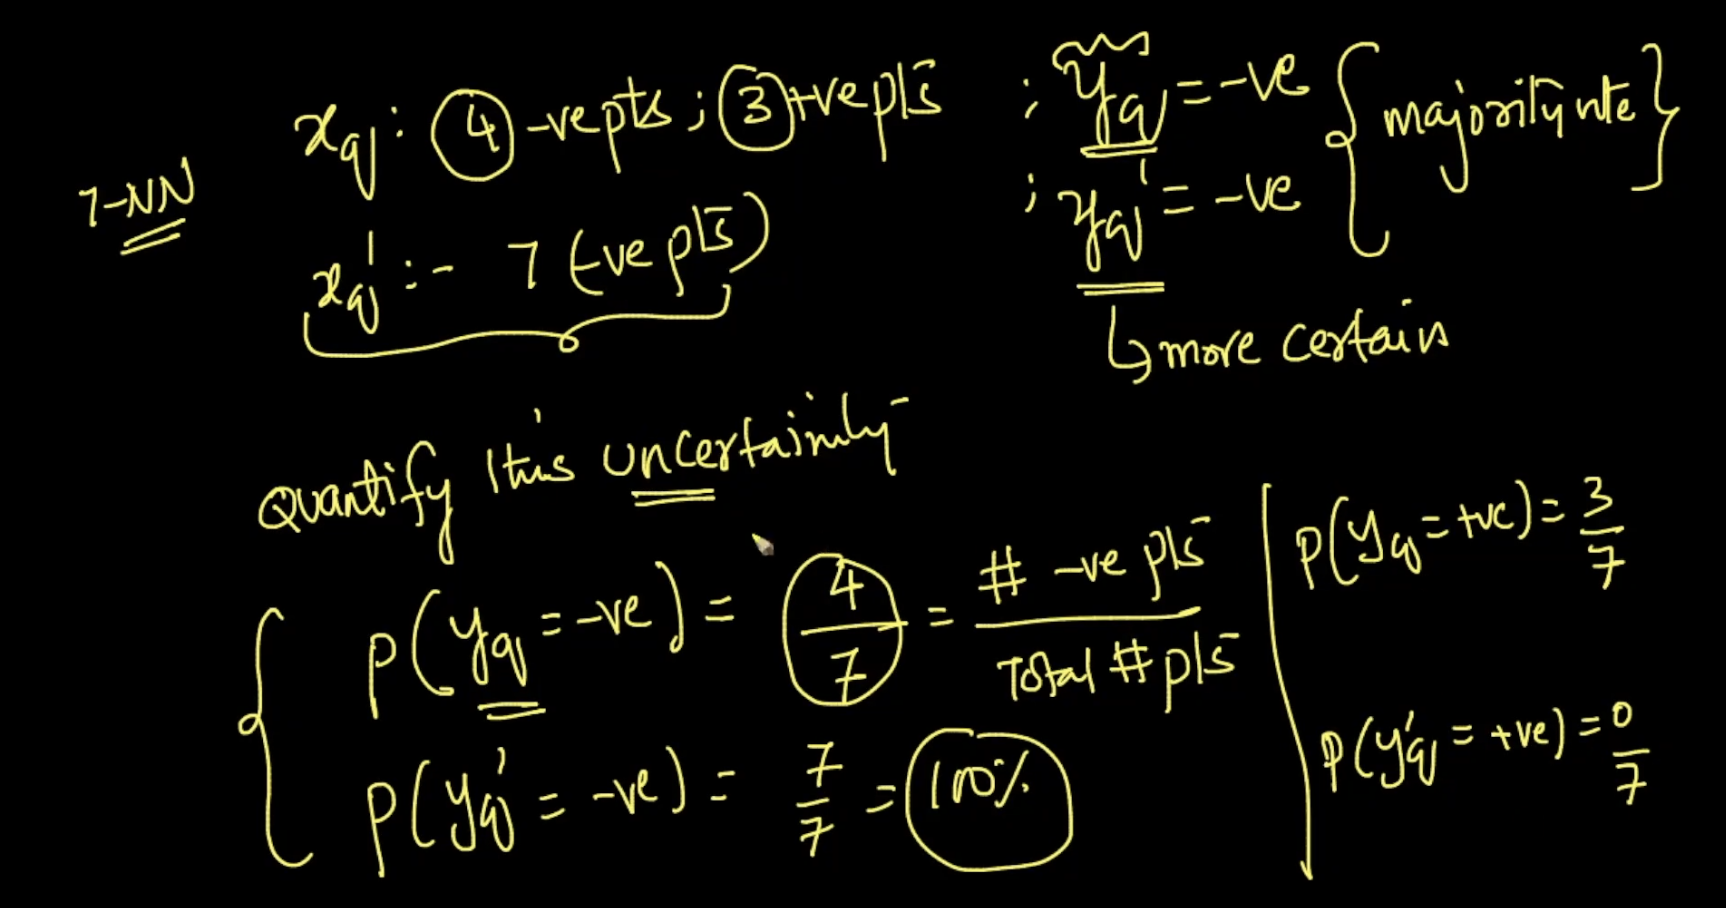 xq: 4 -ve pts ; 3 +ve pts ; yq = -ve { majority vote }
7-NN
xq' :- 7 (-ve pts) ; yq' = -ve
↳ more certain
Quantify this uncertainity
P(yq = -ve) = 4/7 = # -ve pts / Total # pts
P(yq = +ve) = 3/7
P(yq' = -ve) = 7/7 = 100%
P(yq' = +ve) = 0/7